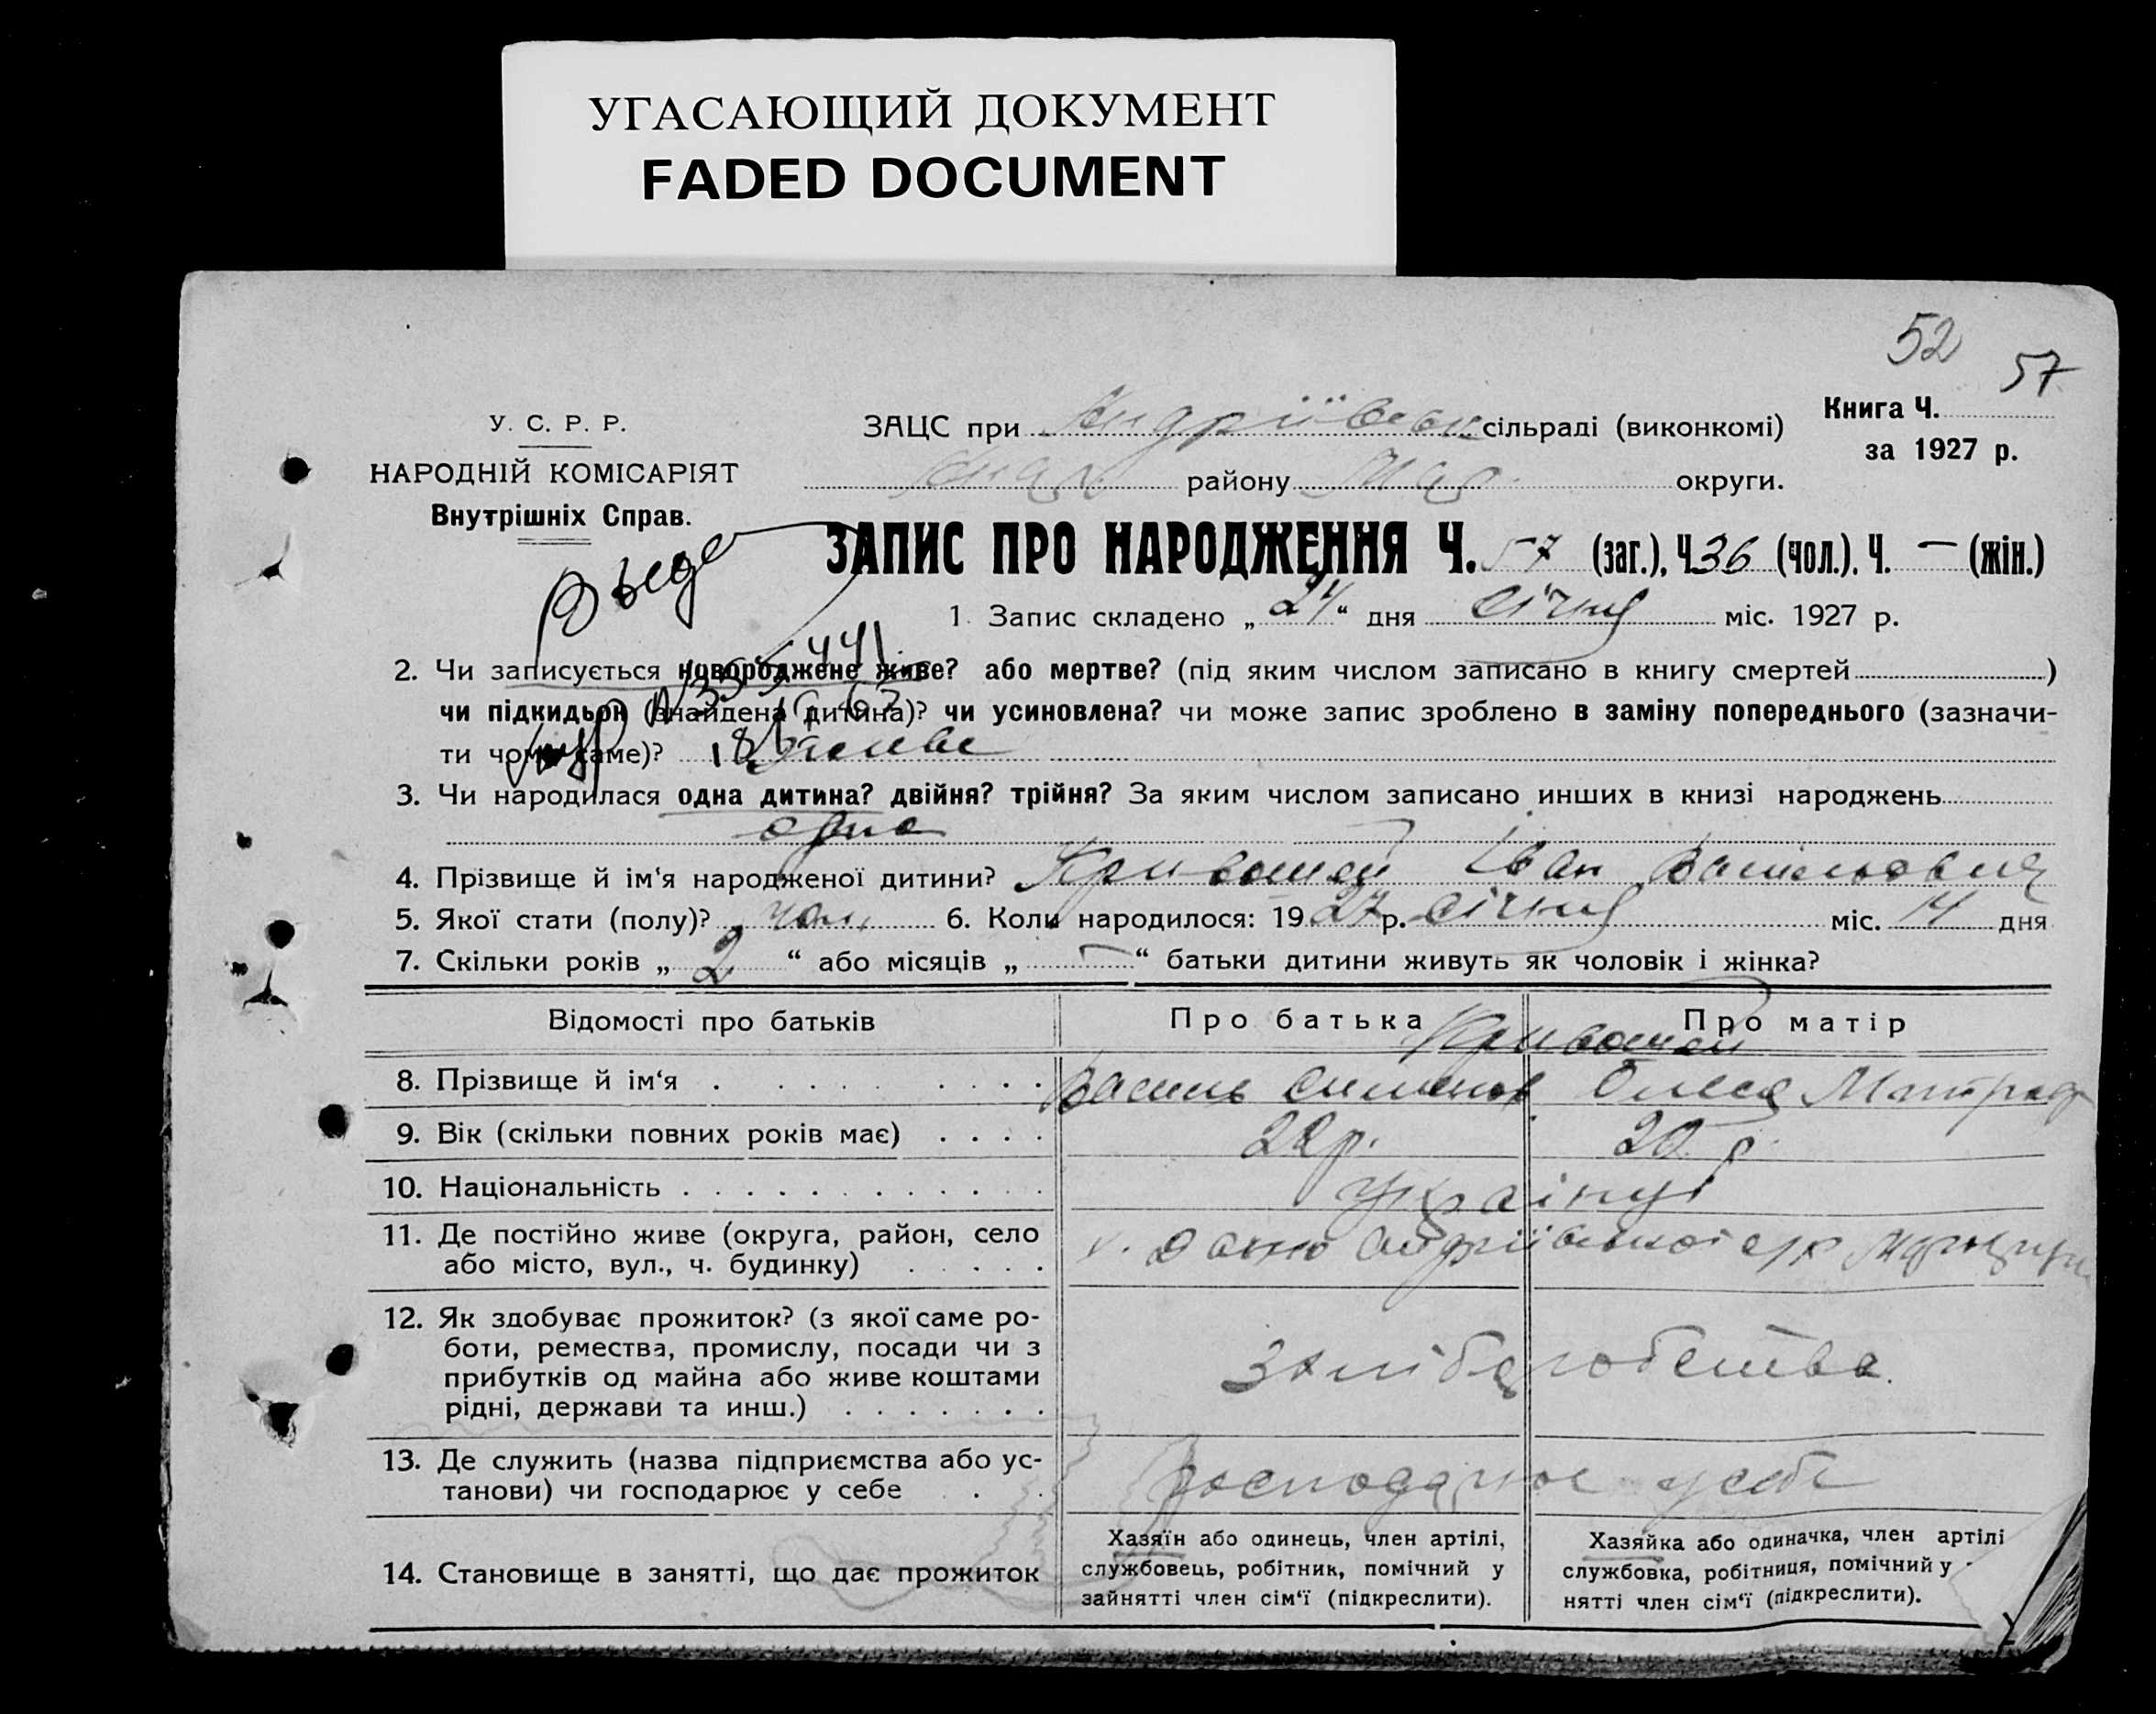 УГАСАЮЩИЙ ДОКУМЕНТ
FADED DOCUMENT
52
57
У. С. Р. Р.
НАРОДНІЙ КОМІСАРІЯТ
Внутрішніх Справ.
ЗАЦС при Андріївськ сільраді (виконкомі)
району округи.
Книга Ч.
за 1927 р.
ЗАПИС ПРО НАРОДЖЕННЯ Ч. 57 (заг.), Ч. 36 (чол.). Ч. — (жін.)
1. Запис складено „24“ дня січня міс. 1927 р.
2. Чи записується новороджене живе? або мертве? (під яким числом записано в книгу смертей)
чи підкидьок (знайдена дитина)? чи усиновлена? чи може запис зроблено в заміну попереднього (зазначи-
ти чому саме)? живе
3. Чи народилася одна дитина? двійня? трійня? За яким числом записано инших в книзі народжень
одна
4. Прізвище й ім‘я народженої дитини? Кривошей Іван Васильович
5. Якої стати (полу)? чол. 6. Коли народилося: 1927 р. січня міс. 14 дня
7. Скільки років „2“ або місяців „—“ батьки дитини живуть як чоловік і жінка?
Відомості про батьків Про батька Про матір
Кривошей
8. Прізвище й ім‘я Василь Олеся
9. Вік (скільки повних років має) 22 р. 20 р.
10. Національність українці
11. Де постійно живе (округа, район, село
або місто, вул., ч. будинку)
12. Як здобуває прожиток? (з якої саме ро-
боти, ремества, промислу, посади чи з
прибутків од майна або живе коштами
рідні, держави та инш.) хліборобства.
13. Де служить (назва підприємства або ус-
танови) чи господарює у себе господарює у себе
14. Становище в занятті, що дає прожиток
Хазяїн або одинець, член артілі,
службовець, робітник, помічний у
зайнятті член сім‘ї (підкреслити).
Хазяйка або одиначка, член артілі
службовка, робітниця, помічний у
нятті член сім‘ї (підкреслити).